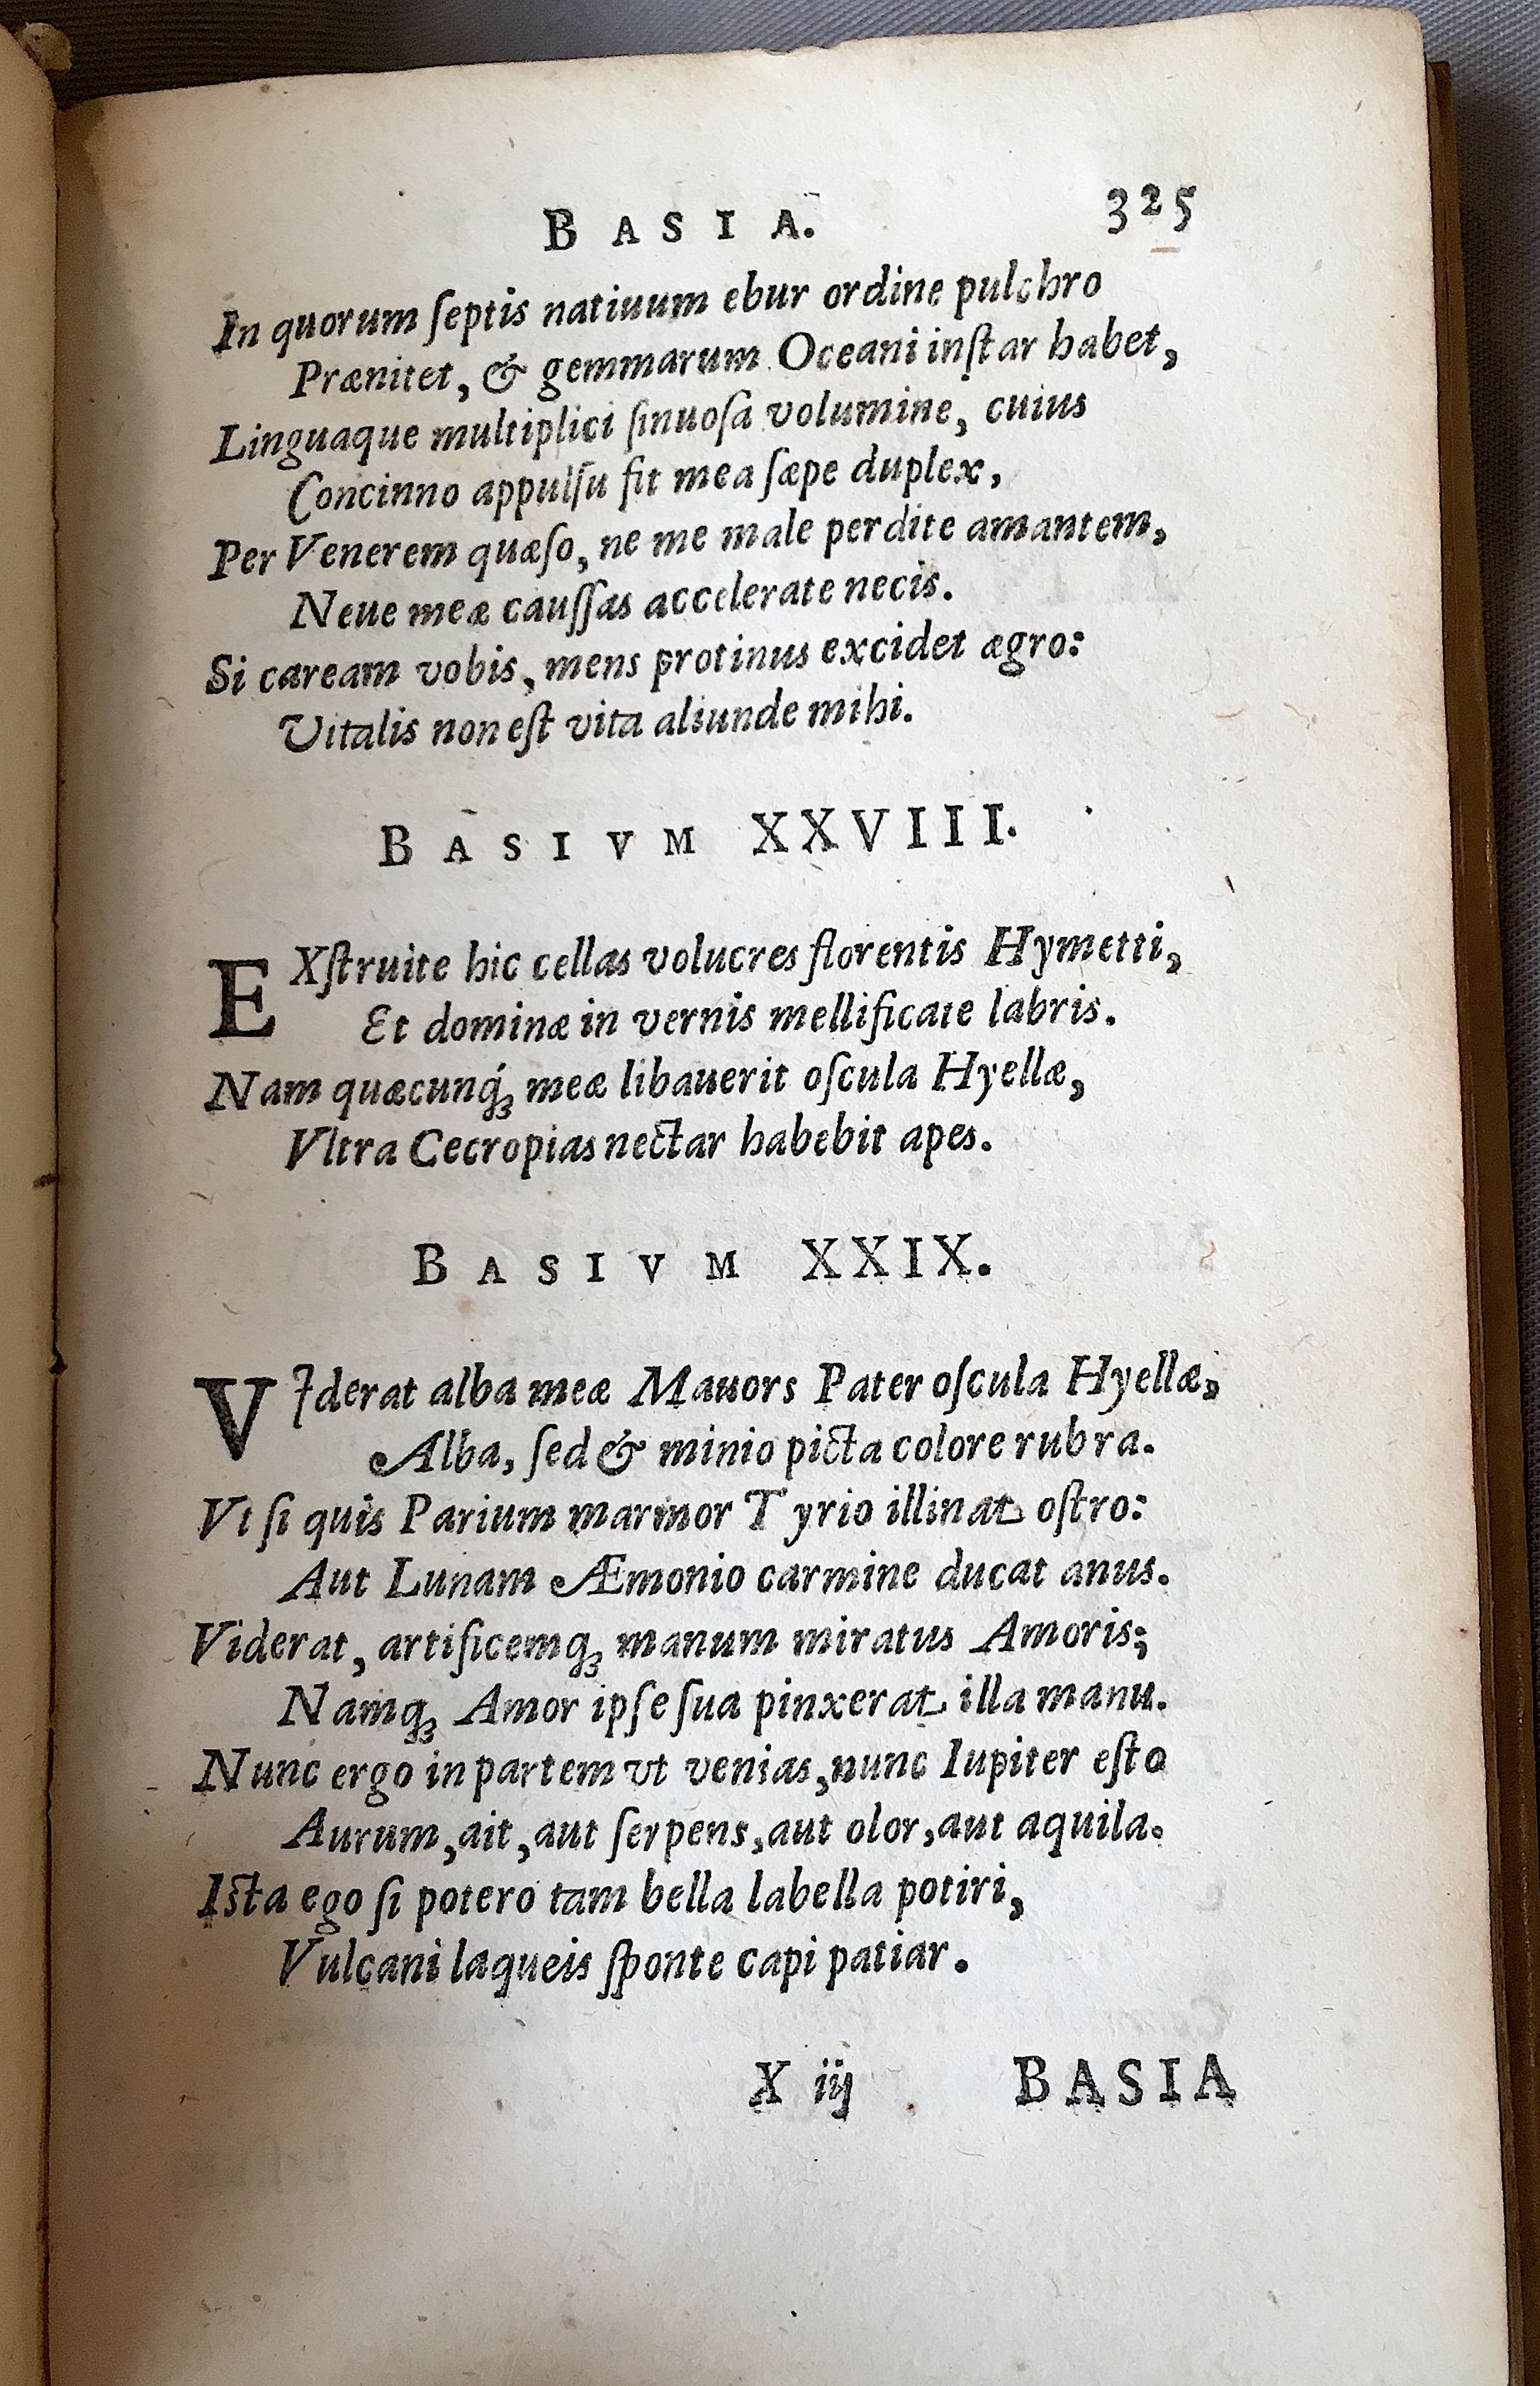 BASIA. 325
In quorum ſeptis natiuum ebur ordine pulchro
Prænitet, & gemmarum Oceani inſtar habet,
Linguaque multiplici ſinuoſa volumine, cuius
Concinno appulſu fit mea ſæpe duplex,
Per Venerem quæſo, ne me male perdite amantem,
Neue meæ cauſſas accelerate necis.
Si caream vobis, mens protinus excidet ægro:
Vitalis non eſt vita aliunde mihi.
BASIVM XXVIII.
EXſtruite hic cellas volucres florentis Hymetti,
Et dominæ in vernis mellificate labris.
Nam quæcunq́ꝫ meæ libauerit oſcula Hyellæ,
Vltra Cecropias nectar habebit apes.
BASIVM XXIX.
VIderat alba meæ Mauors Pater oſcula Hyellæ,
Alba, ſed & minio picta colore rubra.
Vt ſi quis Parium marmor Tyrio illinat oſtro:
Aut Lunam Æmonio carmine ducat anus.
Viderat, artificemqꝫ manum miratus Amoris;
Namqꝫ Amor ipſe ſua pinxerat illa manu.
Nunc ergo in partem vt venias, nunc Iupiter eſto
Aurum, ait, aut ſerpens, aut olor, aut aquila.
Iſta ego ſi potero tam bella labella potiri,
Vulcani laqueis ſponte capi patiar.
X iij BASIA